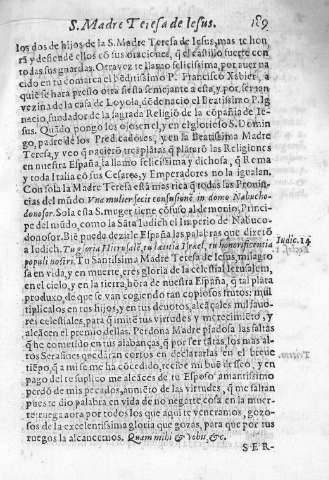 S. Madre Teresa de Iesus. 189
los dos de hijos de la S. Madre Teresa de Iesus, mas te hon
rã y defiende ellos cõ sus oraciones, q̃ el castillo fuerte con
todas sus guardas. Otra vez te llamo felicissima, por auer na
cido en tu comarca el beatissimo P. Francisco Xabier, a
quie se hara presto otra fiesta semejante a esta, y por ser tan
vezina de la casa de Loyola, dõde nacio el Beatissimo P. Ig
nacio, fundador de la sagrada Religiõ de la cõpañia de Ie-
sus. Quãdo pongo los ojos en el, y en el glorioso S. Domin
go, padre de los Predicadores, y en la Beatissima Madre
Teresa, y veo q̃ naciero tres plãtas q̃ plãtarõ las Religiones
en nuestra España, la llamo felicissima y dichosa, q̃ Roma
y toda Italia cõ sus Cesares, y Emperadores no la igualan.
Con sola la Madre Teresa està mas rica q̃ todas las Prouin
cias del mũdo. Vna mulier fecit confusionẽ in domo Nabucho-
donosor. Sola esta S. muger tiene cõfuso al demonio, Princi-
pe del mũdo, como la Sãta Iudich al Imperio de Nabuco-
donosor. Biẽ puedo dezirle España las palabras que dixerõ
a Iudich. Tu gloria Hierusalẽ, tu lætitia Israel, tu honorificentia
populi nostri. Tu Santissima Madre Teresa de Iesus, milagro
Iudic. 14
sa en vida, y en muerte, eres gloria de la celestial Ierusalem,
en el cielo, y en la tierra, hõra de nuestra España, q̃ tal plãta
produxo, de que se van cogiendo tan copiosos frutos: mul
tiplicalos en tus hijos, y en tus deuotos, alcãçales mil fauo
res celestiales, para q̃ imitẽ tus virtudes y merecimiẽto, y
alcãcen el premio dellas. Perdona Madre piadosa las faltas
q̃ he cometido en tus alabanças, q̃ por ser tãtas, los mas al-
tos Serafines quedàran cortos en declararlas en el breue
tiẽpo, q̃ a mi se me ha cõcedido, recibe mi buẽ desseo, y en
pago del te suplico me alcãces de tu Esposo amantissimo
perdõ de mis pecados, aumẽto de las virtudes, q̃ me faltan
pues te dio palabra en vida de no negarte cosa en la muer-
te: ruega aora por todos los que aqui te veneramos, gozo-
sos de la excelentissima gloria que gozas, para que por tus
ruegos la alcancemos. Quam mihi & vobis, &c.
SER-